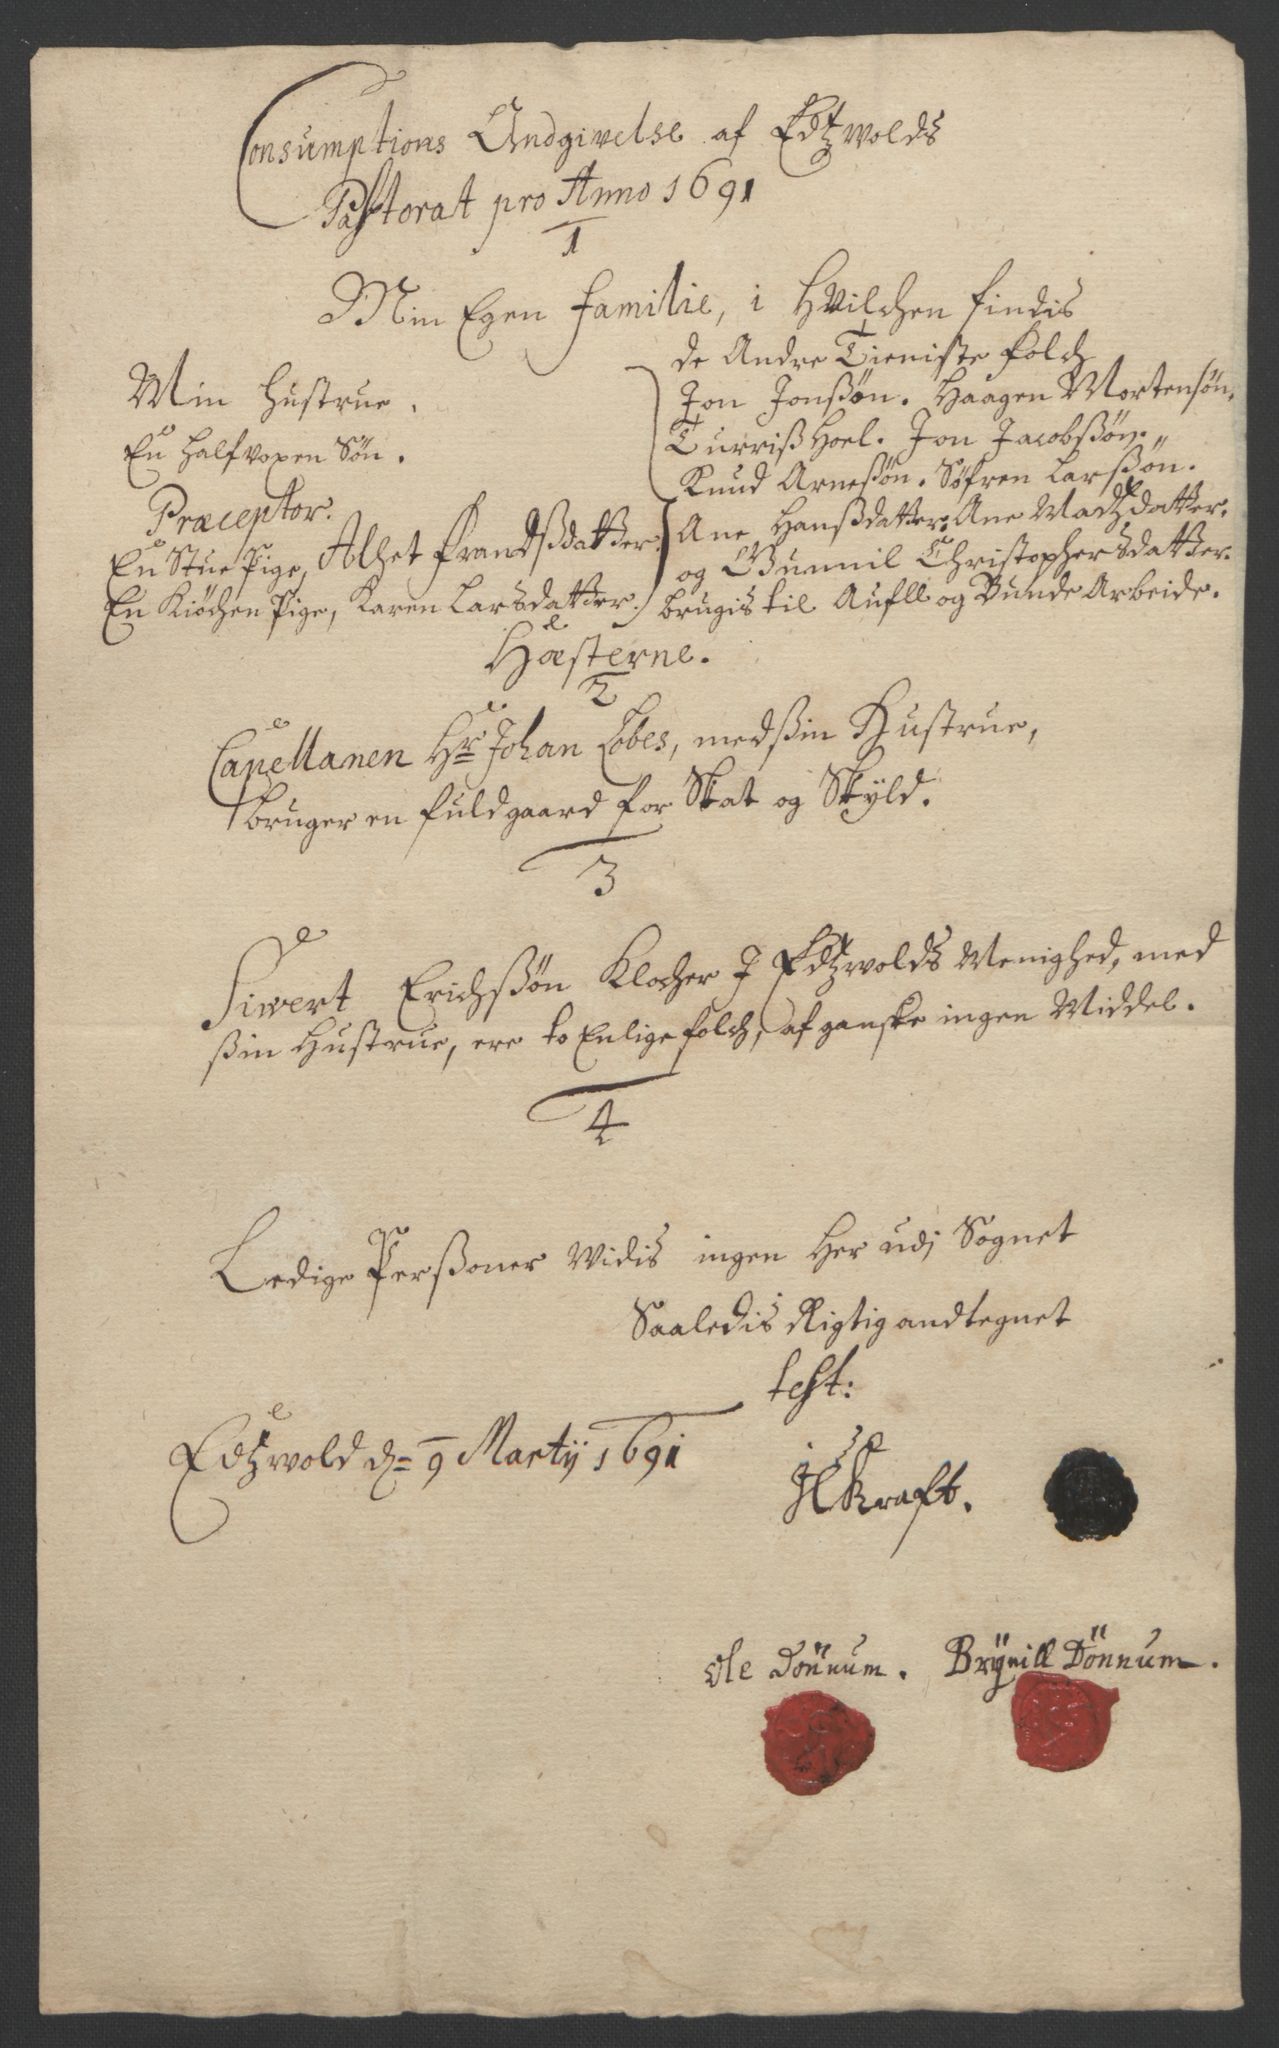 Consumptions Andgivelse af Edtzwolds
Pastorat pro Anno 1691
1
Min Egen familie, i Hvilchen findis
Min hustrue.
En halfvoxen Søn.
Præceptor.
En Stue Pige, Alhet Frandsßdatter.
En Kiøchen Pige, Karen Larsdatter.
de Andre Tieniste folch
Jon Jonßøn. Haagen Mortensøn.
Turriß Hoel. Jon Jacobßøn.
Knud Arneßøn. Søfren Larßøn.
Ane Hanßdatter. Ane Madtzdatter.
og Gunnil Christophersdatter.
brugis til Aufll og Bunde Arbeide.
Hæsterne.
2
Capellanen Hr Johan Cobes, med ßin Hustrue,
bruger en fuldgaard for Skat og Skyld.
3
Siwert Erichßøn Klocher J Edtzwolds Menighed, med
ßin Hustrue, ere to Enlige folch, af ganske ingen Middel.
4
Ledige Perßoner Widis ingen Her udj Sognet
Saaledis Rigtig andtegnet
test:
Edtzwold d= 9 Martij 1691
Kraft.
Ole Dönnum. Brÿnill Dönnum.